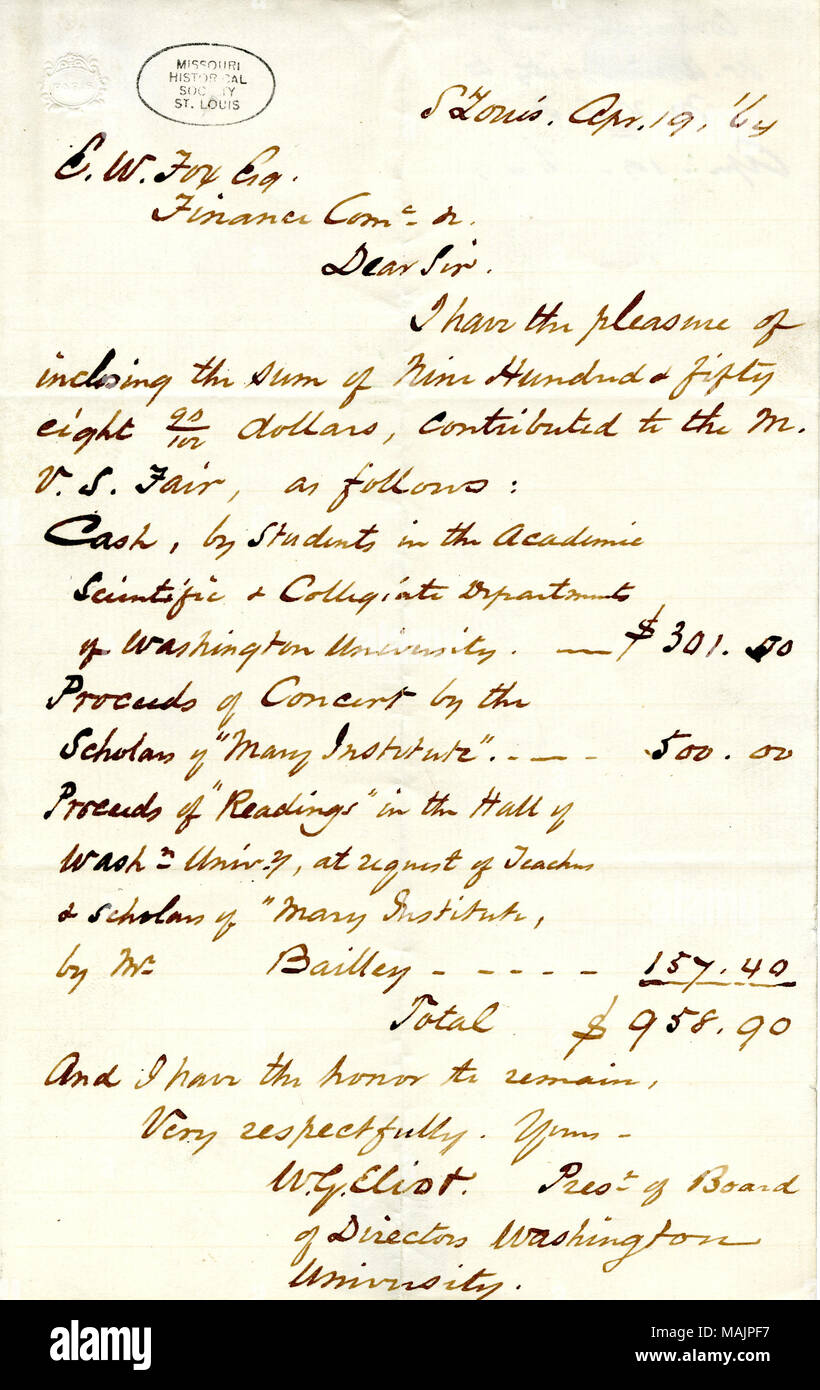 MISSOURI
HISTORICAL
SOCIETY
ST. LOUIS
PARIS
St Louis. Apr. 19. '64
E. W. Fox Esq.
Finance Com.
Dear Sir.
I have the pleasure of
inclosing the sum of Nine Hundred & fifty
eight 90/100 dollars, contributed to the M.
V. S. Fair, as follows:
Cash, by Students in the Academic
Scientific & Collegiate Departments
of Washington University. — $301.50
Proceeds of Concert by the
Scholars of "Mary Institute". - - - 500.00
Proceeds of "Readings" in the Hall of
Wash.n Univ.y, at request of Teachers
& Scholars of "Mary Institute,
by Mr Bailley - - - - - 157.40
Total $958.90
And I have the honor to remain,
Very respectfully. Yours -
W.G. Eliot. Pres.t of Board
of Directors Washington
University.
alamy
Image ID: MAJPF7
www.alamy.com